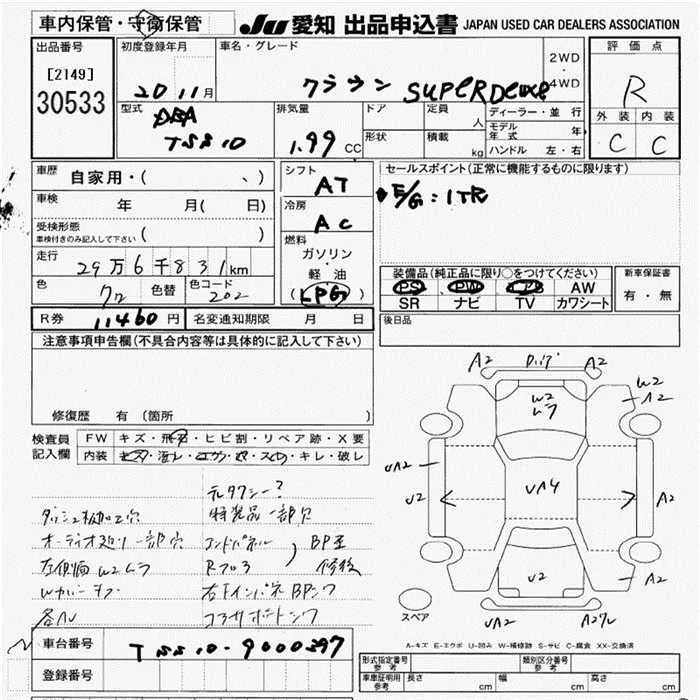 車内保管・守衛保管
JU 愛知 出品申込書 JAPAN USED CAR DEALERS ASSOCIATION
出品番号
[2149]
30533
初度登録年月
20 11月
車名・グレード
クラウン SUPERDeluxe
2WD
・
4WD
評価点
R
外装 内装
C C
型式
DBA
TSS10
排気量
1.99 CC
ドア
形状
定員 人
積載 kg
ディーラー・並行
モデル年式 年
ハンドル 左・右
車歴
自家用・( 、 )
車検 年 月( 日)
受検形態
車検付きのみ記入して下さい ( )
走行
29万6千831km
色
クロ
色替
色コード
202
シフト
AT
冷房
AC
燃料
ガソリン
軽油
(LPG)
セールスポイント(正常に機能するものに限ります)
E/G:1TR
装備品(純正品に限り○をつけてください)
PS PW AB AW
SR ナビ TV カワシート
新車保証書
有・無
R券 11460円 名変通知期限 月 日
後日品
注意事項申告欄(不具合内容等は具体的に記入して下さい)
修復歴 有 (箇所
検査員
記入欄
FW キズ・飛石・ヒビ割・リペア跡・X要
内装 キレ・破レ
元タクシー?
ダッシュ板加工穴 特装品一部欠
オーディオ廻り一部穴 コンドパネル
BP歪
左側面W2ムラ Rフロア
修後
右Fインパネ
コアサポート
車台番号
TSS10-9000397
登録番号
A2 A2
W2
ムラ
W2
A2
UA2
U2
UA4
A2
U2
A2
UA2
スペア
A-キズ E-エクボ U-凹み W-補修跡 S-サビ C-腐食 XX-交換済
形式指定番号
参考
類別区分番号
参考
車庫証明用
参考
長さ cm
幅 cm
高さ cm